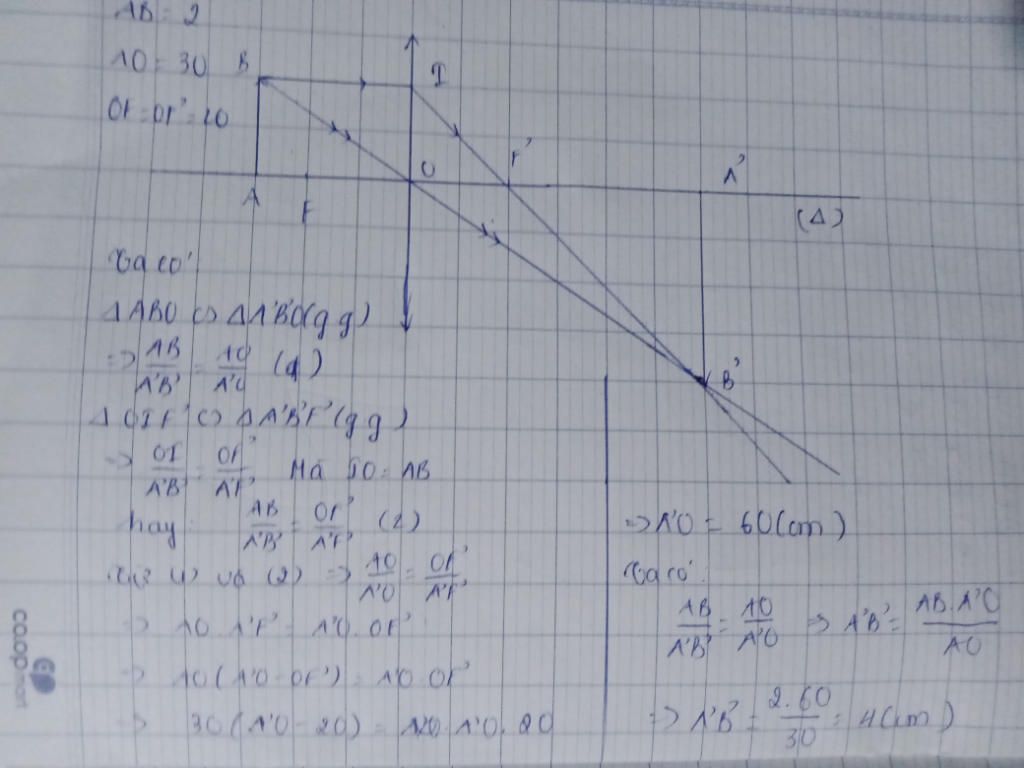 AB = 2
AO = 30
OF = OF' = 20
B
I
O
F'
A'
A
F
(Δ)
B'
Ta có:
ΔABO ∽ ΔA'B'O (g.g)
=> AB/A'B' = AO/A'O (1)
ΔOIF' ∽ ΔA'B'F' (g.g)
=> OI/A'B' = OF'/A'F' Mà IO = AB
hay: AB/A'B' = OF'/A'F' (2)
Từ (1) và (2) => AO/A'O = OF'/A'F'
=> AO.A'F' = A'O.OF'
=> AO(A'O - OF') = A'O.OF'
=> 30(A'O - 20) = A'O.20
=> A'O = 60(cm)
Ta có:
AB/A'B' = AO/A'O => A'B' = AB.A'O/AO
=> A'B' = 2.60/30 = 4(cm)
co.opmart